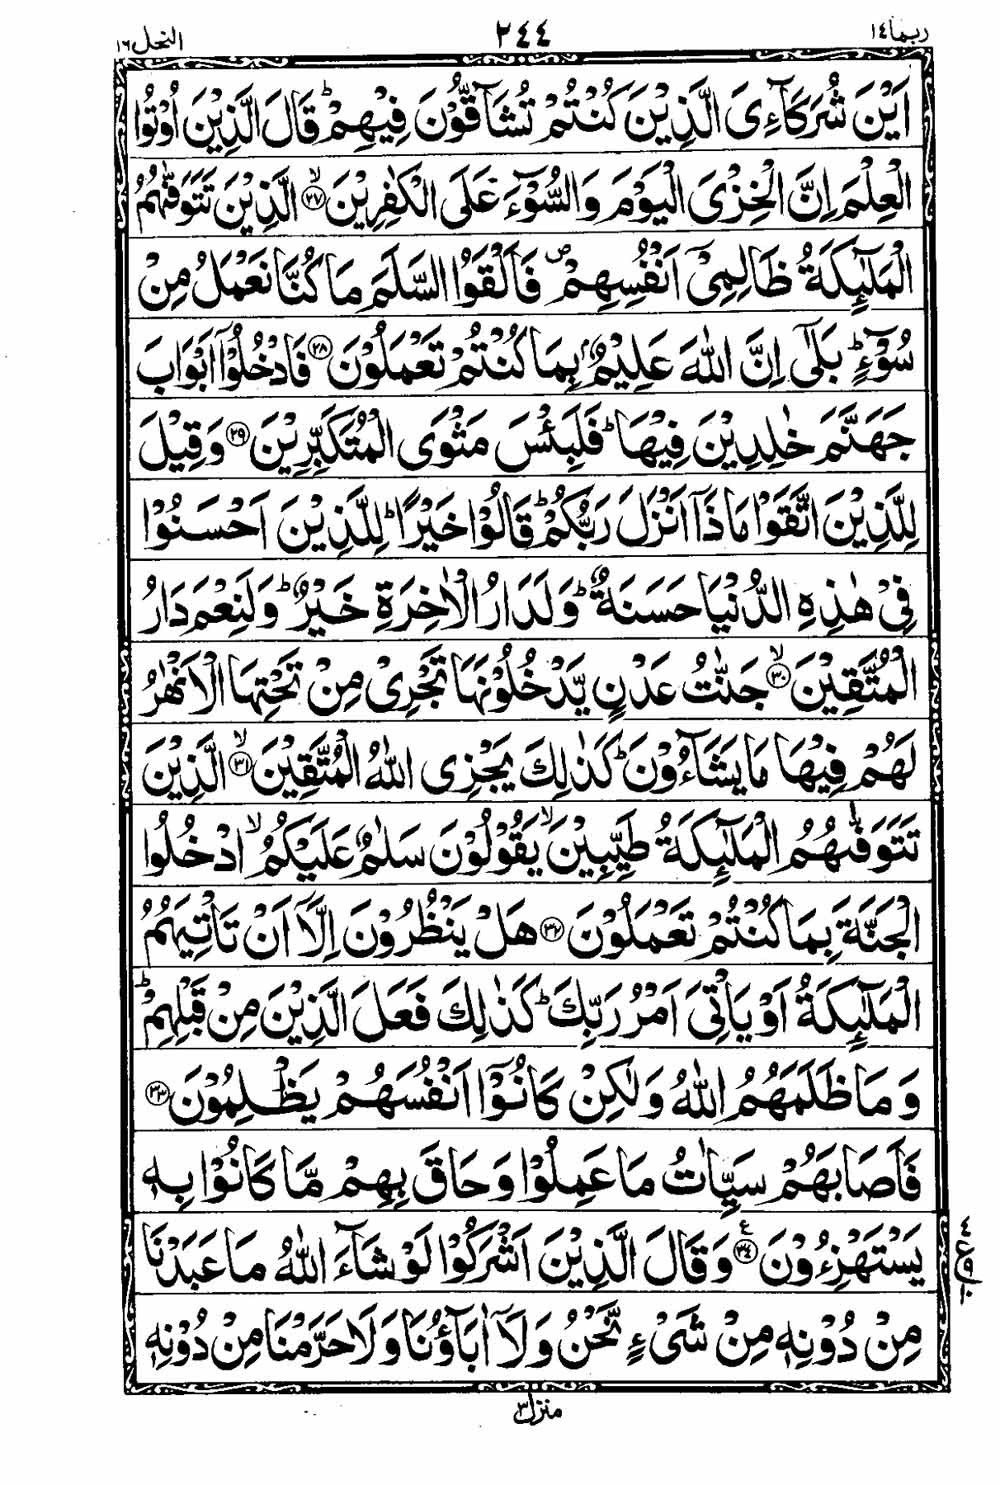 ربما ١٤ ٢٤٤ النحل ١٦
اَيۡنَ شُرَكَآءِىَ الَّذِيۡنَ كُنۡتُمۡ تُشَآقُّوۡنَ فِيۡهِمۡ‌ؕ قَالَ الَّذِيۡنَ اُوۡتُوا
الۡعِلۡمَ اِنَّ الۡخِزۡىَ الۡيَوۡمَ وَالسُّوۡۤءَ عَلَى الۡكٰفِرِيۡنَۙ‏ ﴿۲۷﴾ الَّذِيۡنَ تَتَوَفّٰٮهُمُ
الۡمَلٰۤٮِٕكَةُ ظَالِمِىۡۤ اَنۡفُسِهِمۡ‌ۖ فَاَلۡقَوُا السَّلَمَ مَا كُنَّا نَعۡمَلُ مِنۡ
سُوۡۤءٍؕ بَلٰٓى اِنَّ اللّٰهَ عَلِيۡمٌۢ بِمَا كُنۡتُمۡ تَعۡمَلُوۡنَ‏ ﴿۲۸﴾ فَادۡخُلُوۡۤا اَبۡوَابَ
جَهَنَّمَ خٰلِدِيۡنَ فِيۡهَا‌ؕ فَلَبِئۡسَ مَثۡوَى الۡمُتَكَبِّرِيۡنَ‏ ﴿۲۹﴾ وَقِيۡلَ
لِلَّذِيۡنَ اتَّقَوۡا مَاذَاۤ اَنۡزَلَ رَبُّكُمۡ‌ؕ قَالُوۡا خَيۡرًاؕ لِّلَّذِيۡنَ اَحۡسَنُوۡا
فِىۡ هٰذِهِ الدُّنۡيَا حَسَنَةٌ‌ ؕ وَلَدَارُ الۡاٰخِرَةِ خَيۡرٌ‌ ؕ وَلَنِعۡمَ دَارُ
الۡمُتَّقِيۡنَۙ‏ ﴿۳۰﴾ جَنّٰتُ عَدۡنٍ يَّدۡخُلُوۡنَهَا تَجۡرِىۡ مِنۡ تَحۡتِهَا الۡاَنۡهٰرُ
لَهُمۡ فِيۡهَا مَا يَشَآءُوۡنَ‌ؕ كَذٰلِكَ يَجۡزِى اللّٰهُ الۡمُتَّقِيۡنَۙ‏ ﴿۳۱﴾ الَّذِيۡنَ
تَتَوَفّٰٮهُمُ الۡمَلٰۤٮِٕكَةُ طَيِّبِيۡنَ‌ۙ يَقُوۡلُوۡنَ سَلٰمٌ عَلَيۡكُمُۙ ادۡخُلُوا
الۡجَـنَّةَ بِمَا كُنۡتُمۡ تَعۡمَلُوۡنَ‏ ﴿۳۲﴾ هَلۡ يَنۡظُرُوۡنَ اِلَّاۤ اَنۡ تَاۡتِيَهُمُ
الۡمَلٰۤٮِٕكَةُ اَوۡ يَاۡتِىَ اَمۡرُ رَبِّكَ‌ؕ كَذٰلِكَ فَعَلَ الَّذِيۡنَ مِنۡ قَبۡلِهِمۡ‌ؕ
وَمَا ظَلَمَهُمُ اللّٰهُ وَلٰـكِنۡ كَانُوۡۤا اَنۡفُسَهُمۡ يَظۡلِمُوۡنَ‏ ﴿۳۳﴾
فَاَصَابَهُمۡ سَيِّاٰتُ مَا عَمِلُوۡا وَحَاقَ بِهِمۡ مَّا كَانُوۡا بِهٖ
يَسۡتَهۡزِءُوۡنَ‏ ﴿۳۴﴾ ع وَقَالَ الَّذِيۡنَ اَشۡرَكُوۡا لَوۡ شَآءَ اللّٰهُ مَا عَبَدۡنَا
مِنۡ دُوۡنِهٖ مِنۡ شَىۡءٍ نَّحۡنُ وَلَاۤ اٰبَآؤُنَا وَلَا حَرَّمۡنَا مِنۡ دُوۡنِهٖ
منزل ٣